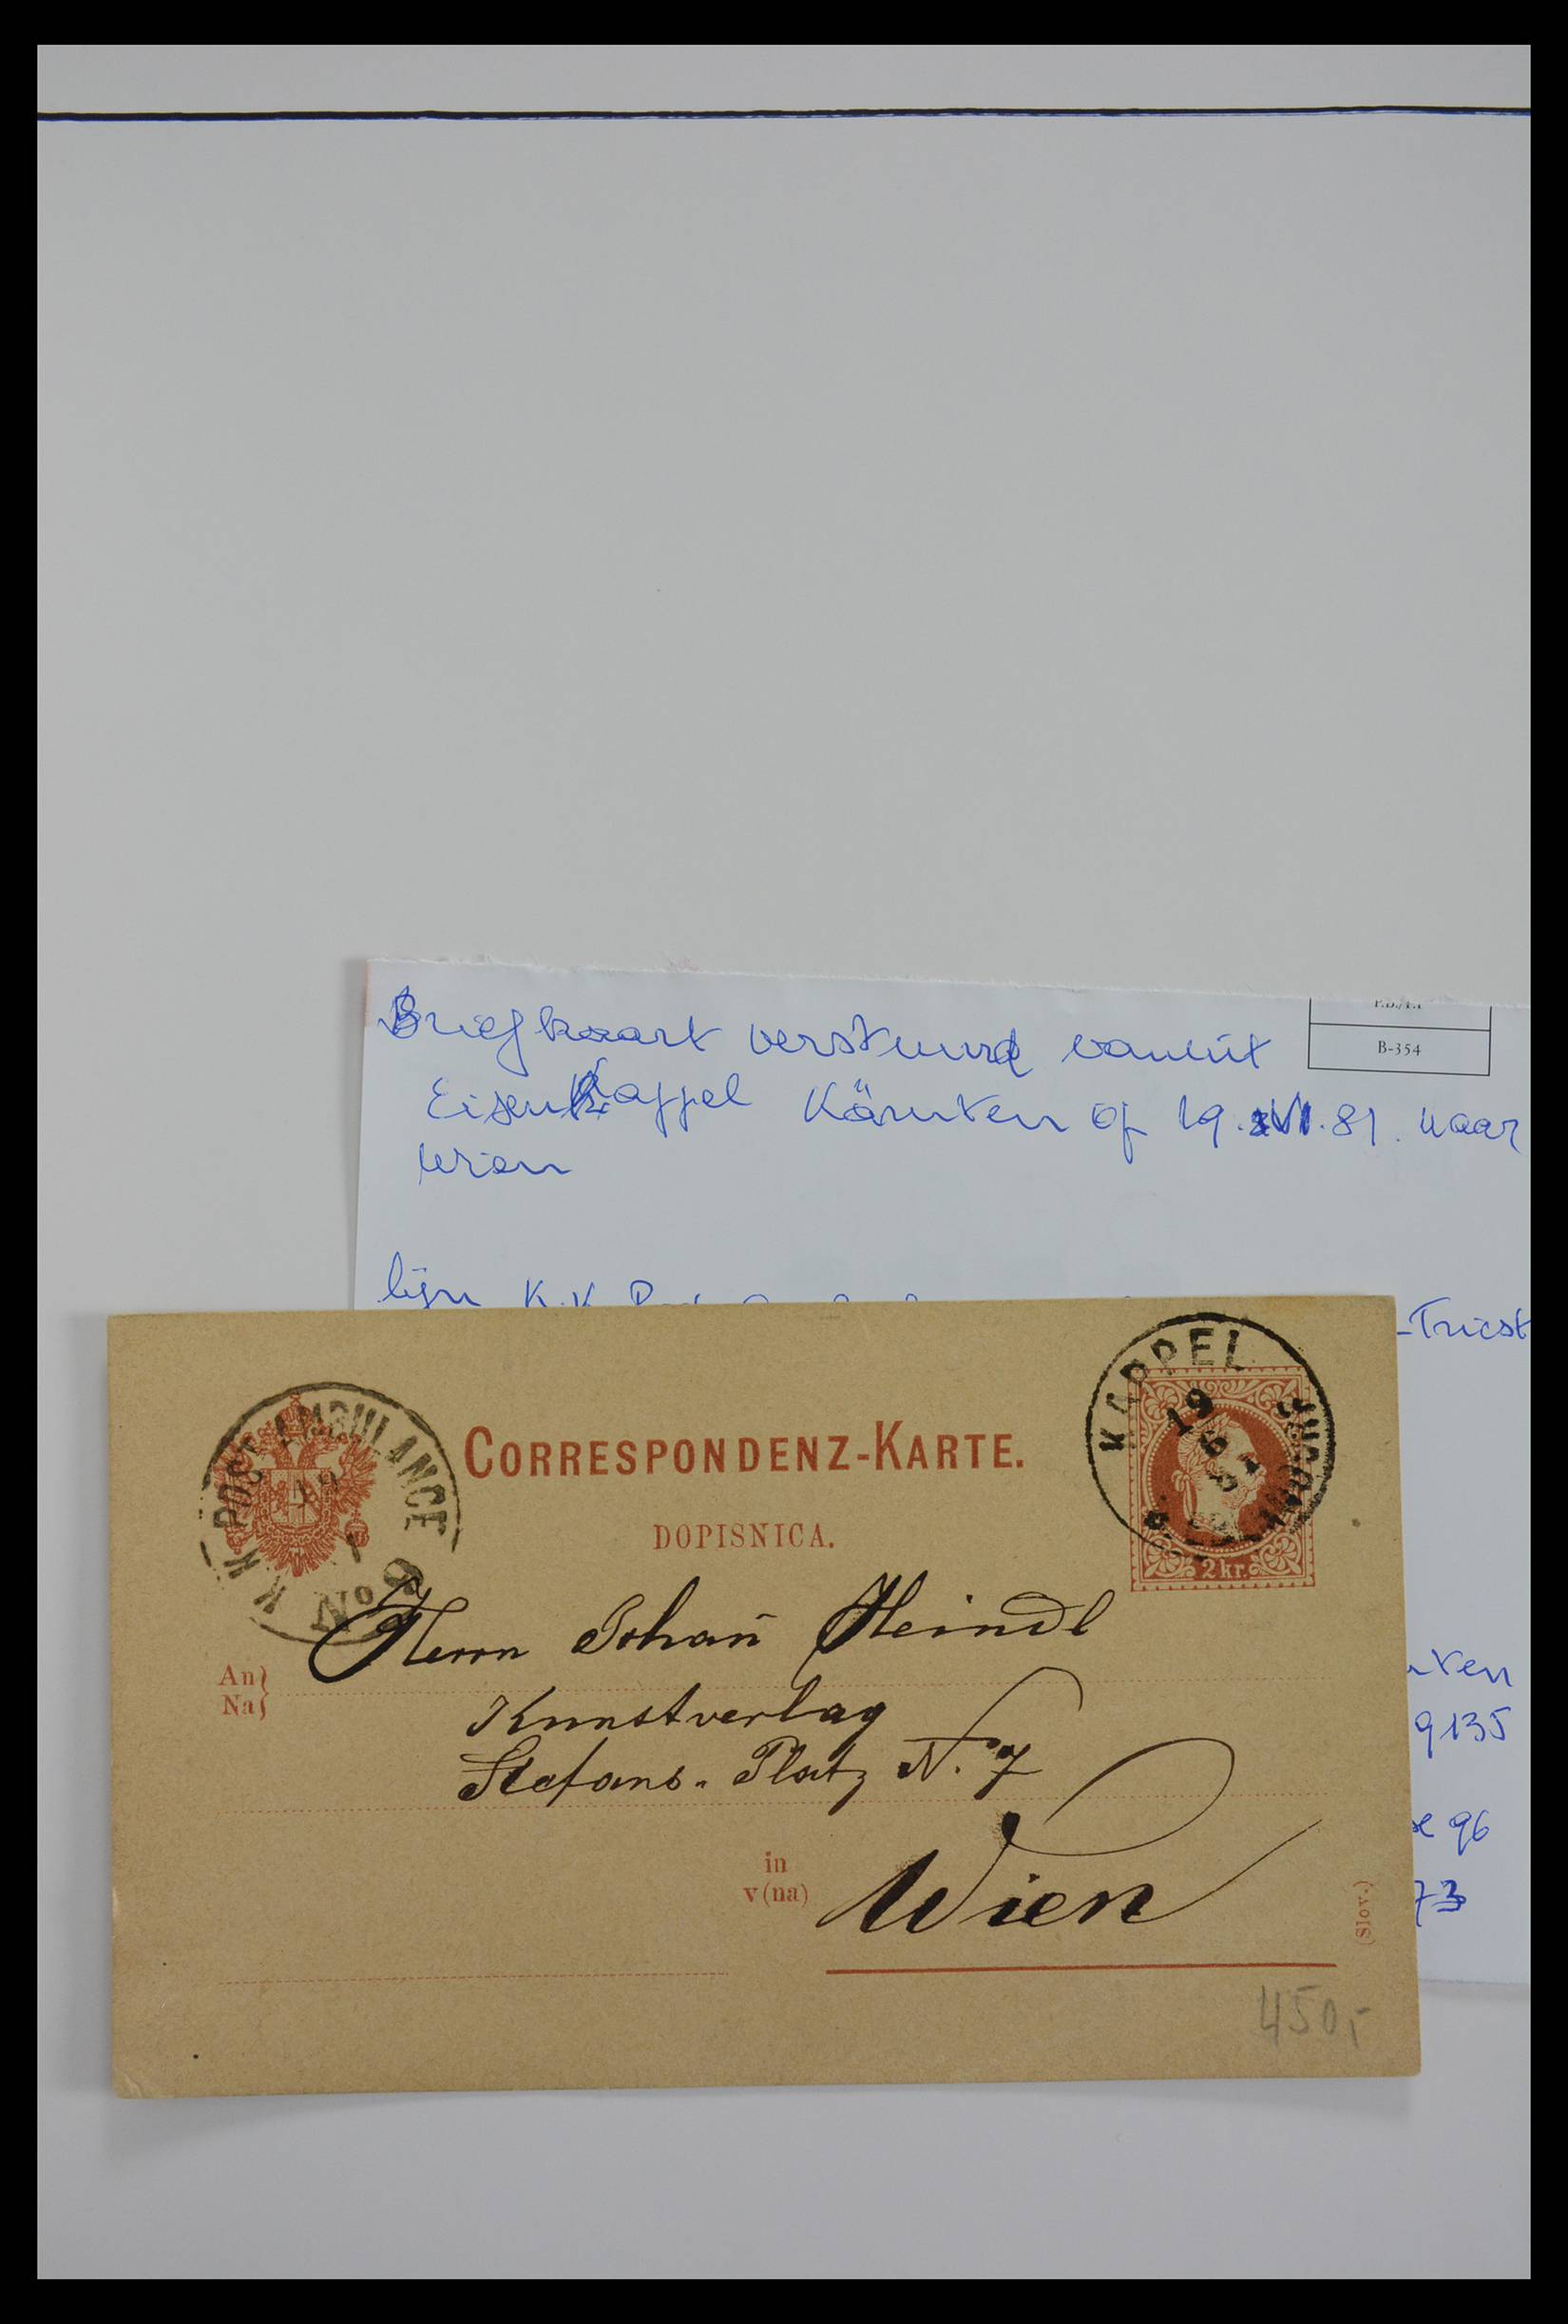 B-354
Briefkaart verstuurd vanuit
Eisenkappel Kärnten op 19.VI.81. naar
Wien
lijn K.K.
-Triest
9135
96
73
KAPPEL
19
6
81
K K POST AMBULANCE
No 6
CORRESPONDENZ-KARTE.
DOPISNICA.
2 kr.
An
Na
Herrn Johan̄ Heindl
Kunstverlag
Stefans-Platz N. 7
in
v (na)
Wien
(Slov.)
450,-